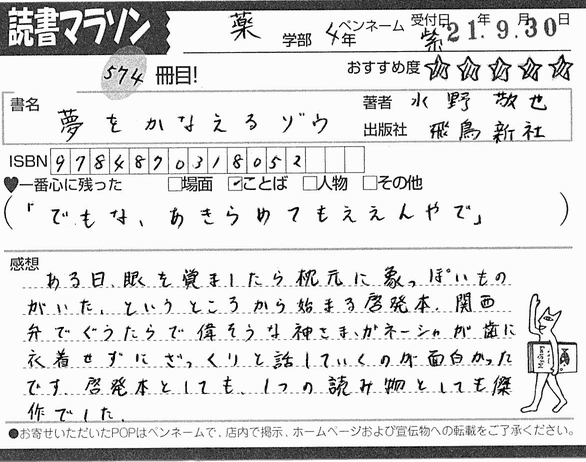 読書マラソン
薬 学部 4年 ペンネーム 紫 受付日 21年9月30日
574 冊目!
おすすめ度 ☆☆☆☆☆
書名 夢をかなえるゾウ
著者 水野敬也
出版社 飛鳥新社
ISBN 9784870318052
♥一番心に残った □場面 ☑ことば □人物 □その他
(「でもな、あきらめてもええんやで」)
感想
ある日、眼を覚ましたら枕元に象っぽいもの
がいた、というところから始まる啓発本。関西
弁でぐうたらで偉そうな神さま、ガネーシャが歯に
衣着せずにざっくりと話していくのが面白かった
です。啓発本としても、1つの読み物としても傑
作でした。
●お寄せいただいたPOPはペンネームで、店内で掲示、ホームページおよび宣伝物への転載をご了承ください。